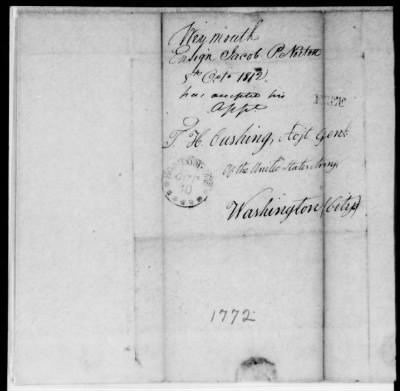 Weymouth
Ensign Jacob P. Norton
5th Octo. 1812
has accepted his
Appt
FREE
T. H. Cushing, Adjt Genl
Of the United States Army
BOSTON MS
OCT
10
Washington (City)
1772